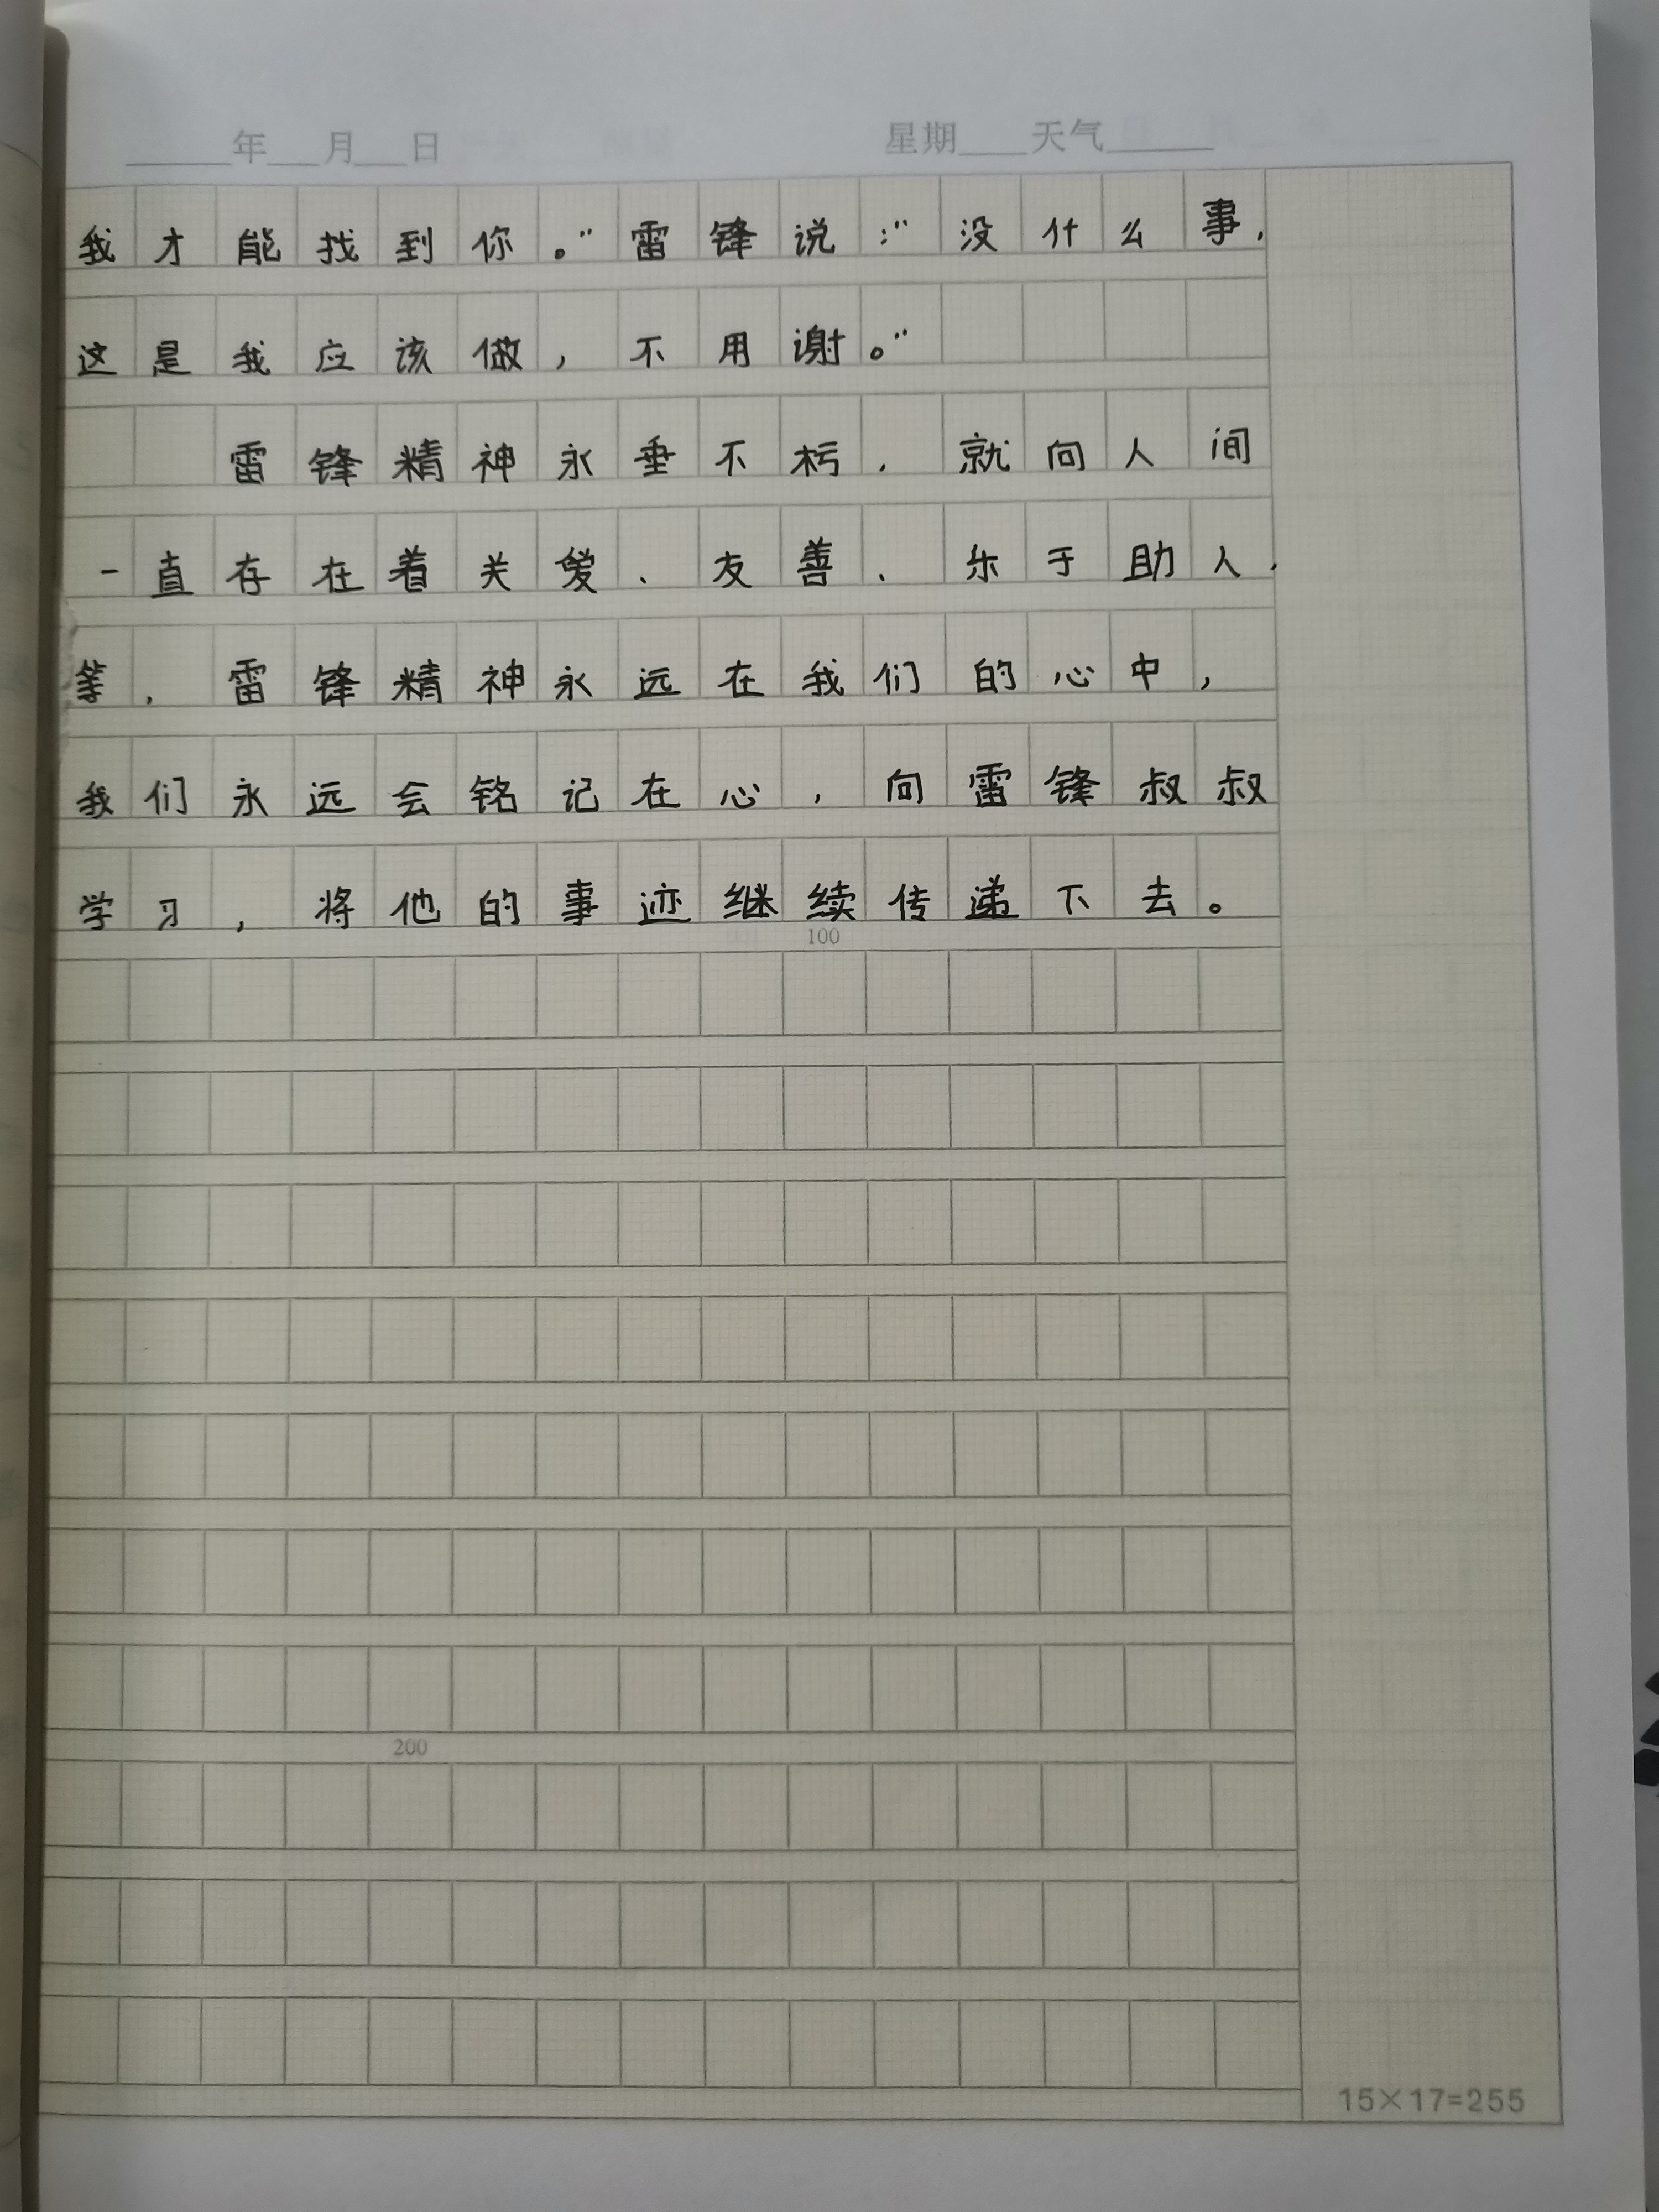 ____年__月__日 星期__天气____
我才能找到你。”雷锋说:“没什么事,
这是我应该做,不用谢。”
雷锋精神永垂不朽,就向人间
一直存在着关爱、友善、乐于助人,
等,雷锋精神永远在我们的心中,
我们永远会铭记在心,向雷锋叔叔
学习,将他的事迹继续传递下去。
100
200
15×17=255